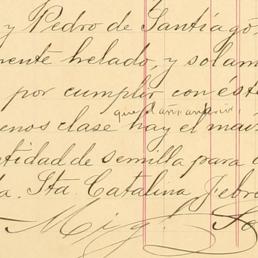 y Pedro de Santiago,
mente helado, y solam
por cumplir con ést
que el año anterior,
enos clase hay el mai
ntidad de semilla para
a. Sta. Catalina, Febr
Mig.